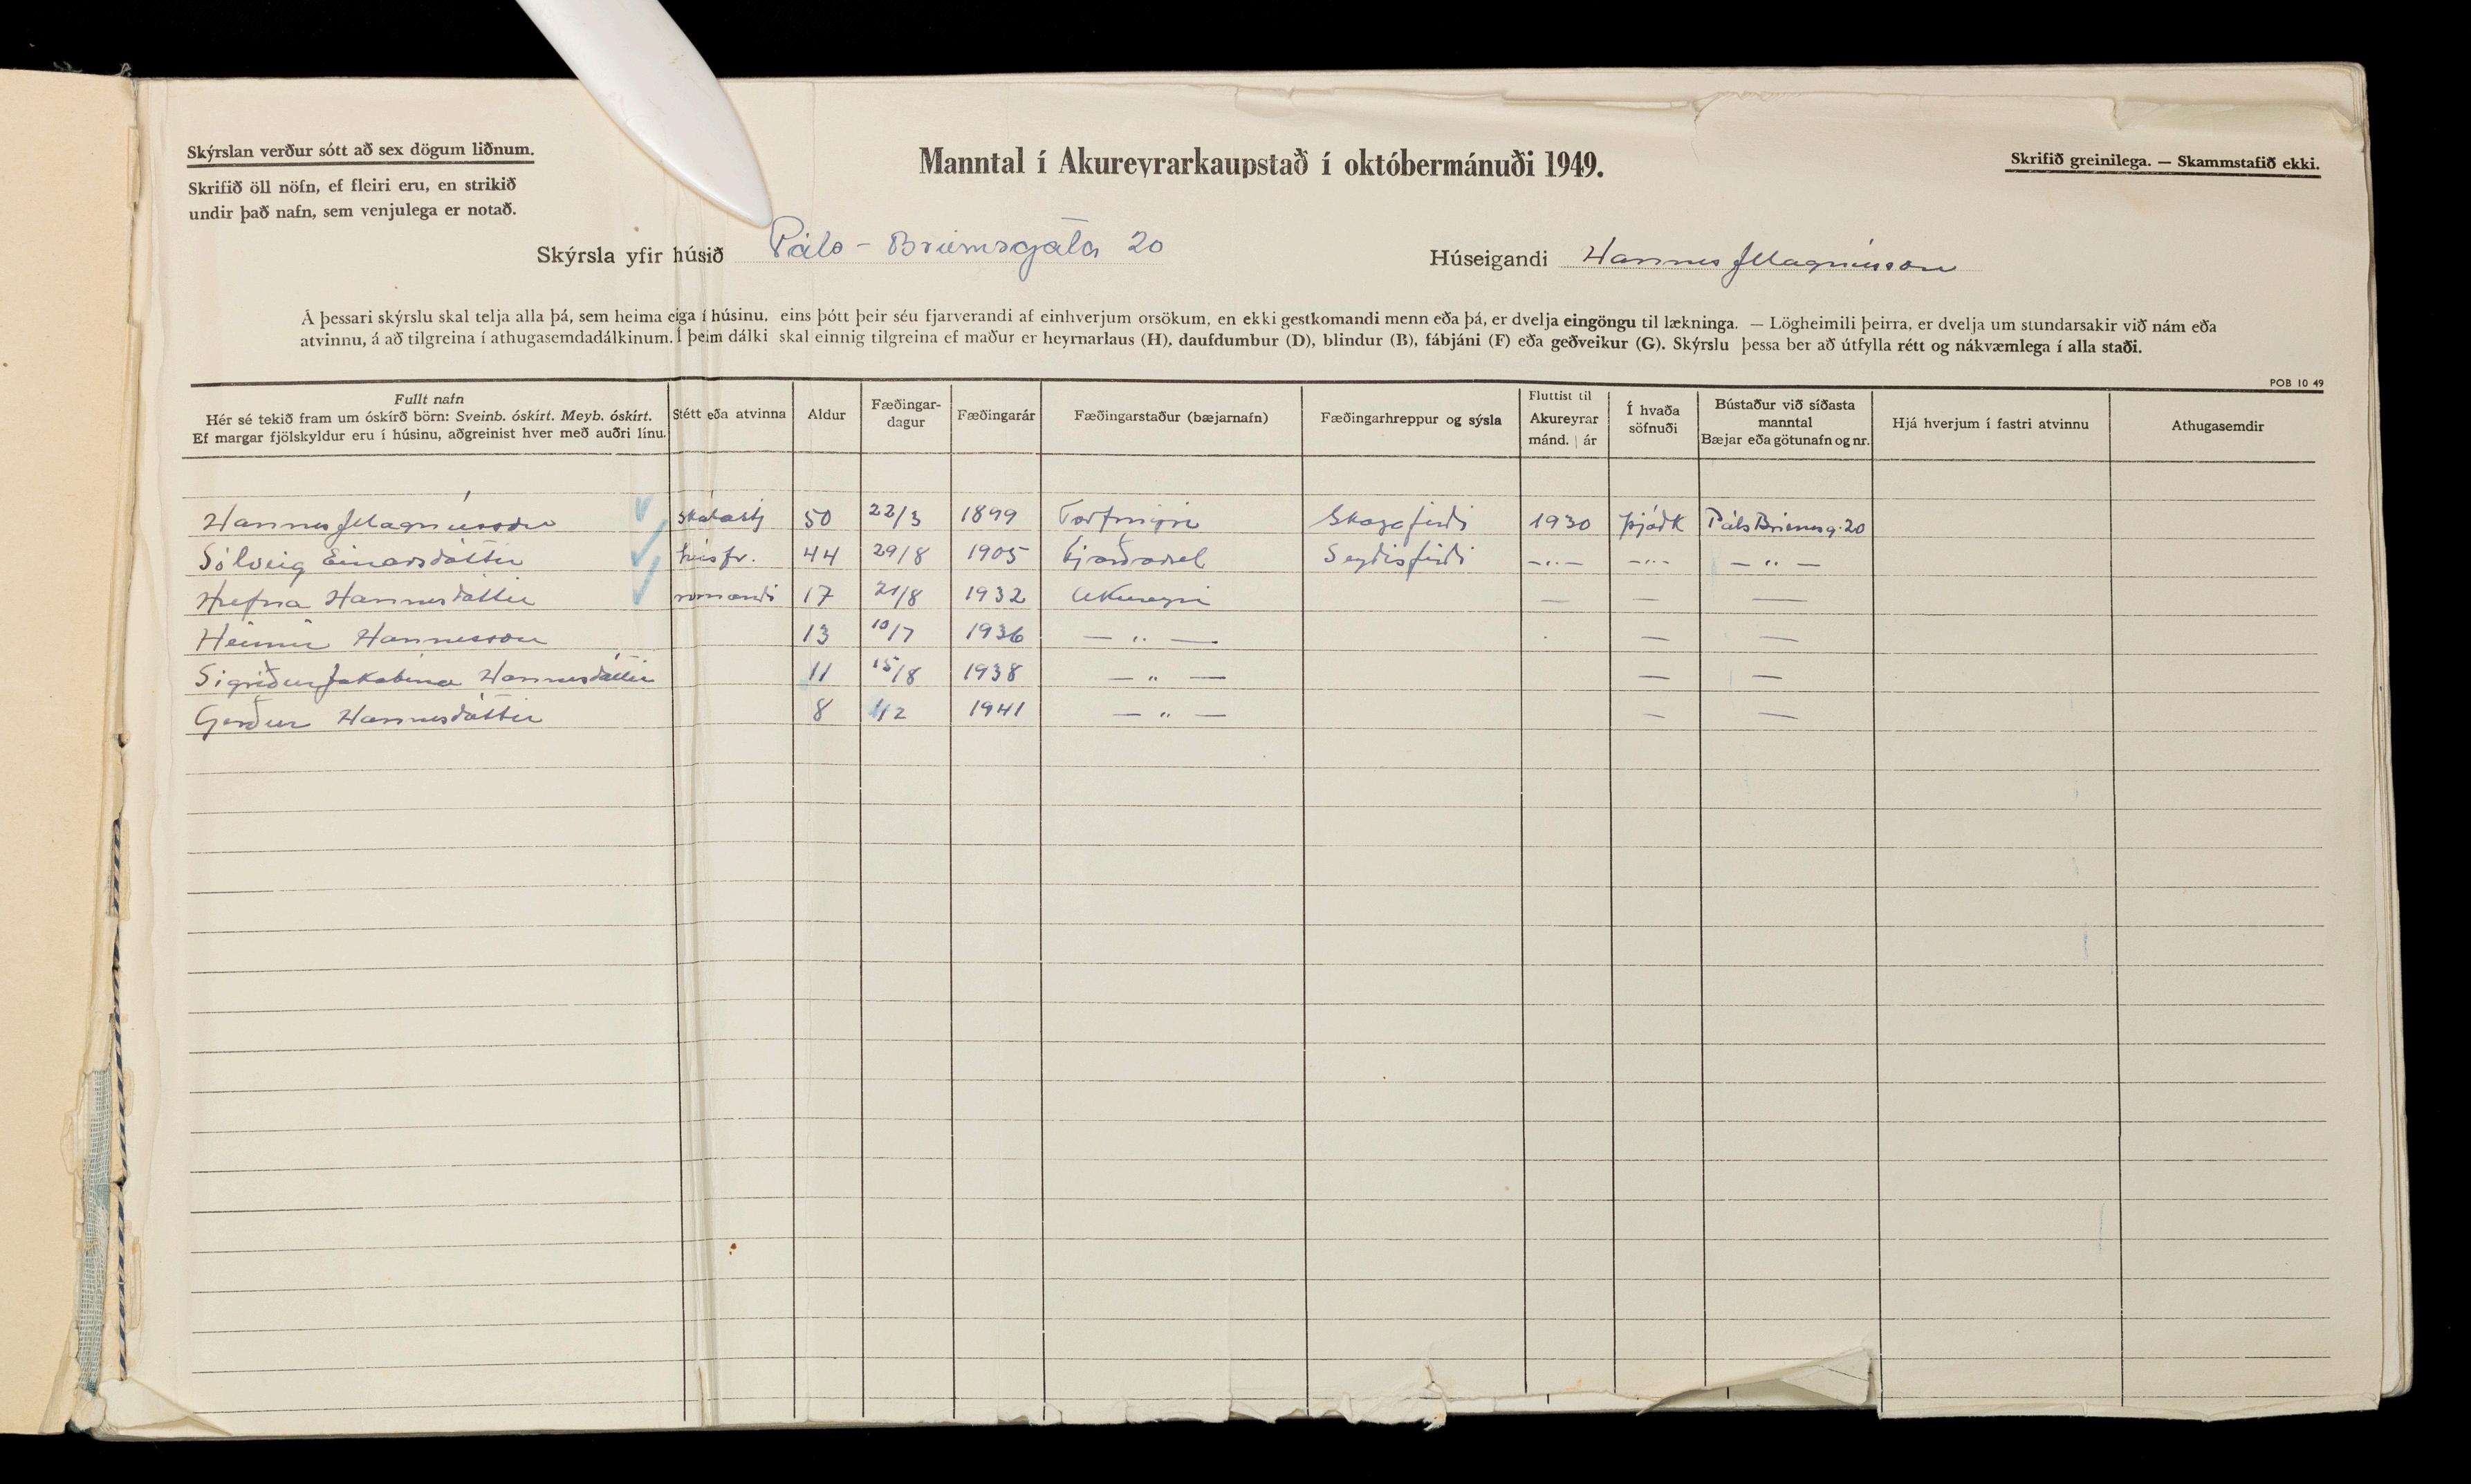 Skýrslan verður sótt að sex dögum liðnum.
Skrifið öll nöfn, ef fleiri eru, en strikið
undir það nafn, sem venjulega er notað.
Manntal í Akureyrarkaupstað í októbermánuði 1949.
Skrifið greinilega. — Skammstafið ekki.
Skýrsla yfir húsið Páls-Briemsgata 20 Húseigandi Hannes J Magnússon
Á þessari skýrslu skal telja alla þá, sem heima eiga í húsinu, eins þótt þeir séu fjarverandi af einhverjum orsökum, en ekki gestkomandi menn eða þá, er dvelja eingöngu til lækninga. — Lögheimili þeirra, er dvelja um stundarsakir við nám eða
atvinnu, á að tilgreina í athugasemdadálkinum. Í þeim dálki skal einnig tilgreina ef maður er heyrnarlaus (H), daufdumbur (D), blindur (B), fábjáni (F) eða geðveikur (G). Skýrslu þessa ber að útfylla rétt og nákvæmlega í alla staði.
POB 10 49
Fullt nafn
Hér sé tekið fram um óskírð börn: Sveinb. óskírt. Meyb. óskírt.
Ef margar fjölskyldur eru í húsinu, aðgreinist hver með auðri línu.
Stétt eða atvinna
Aldur
Fæðingar-
dagur
Fæðingarár
Fæðingarstaður (bæjarnafn)
Fæðingarhreppur og sýsla
Fluttist til
Akureyrar
mánd. | ár
Í hvaða
söfnuði
Bústaður við síðasta
manntal
Bæjar eða götunafn og nr.
Hjá hverjum í fastri atvinnu
Athugasemdir
Hannes J Magnússon skólastj 50 22/3 1899 Torfmýri Skagafirði 1930 þjóðk Páls Briemsg. 20
Sólveig Einarsdóttir húsfr. 44 29/8 1905 Seyðisfirði —"— —"— — " —
Hrefna Hannesdóttir 17 21/8 1932 Akureyri — — —
Heimir Hannesson 13 10/7 1936 — " — — —
Sigríður Jakobína Hannesdóttir 11 15/8 1938 — " — — —
Gerður Hannesdóttir 8 1/2 1941 — " — — —